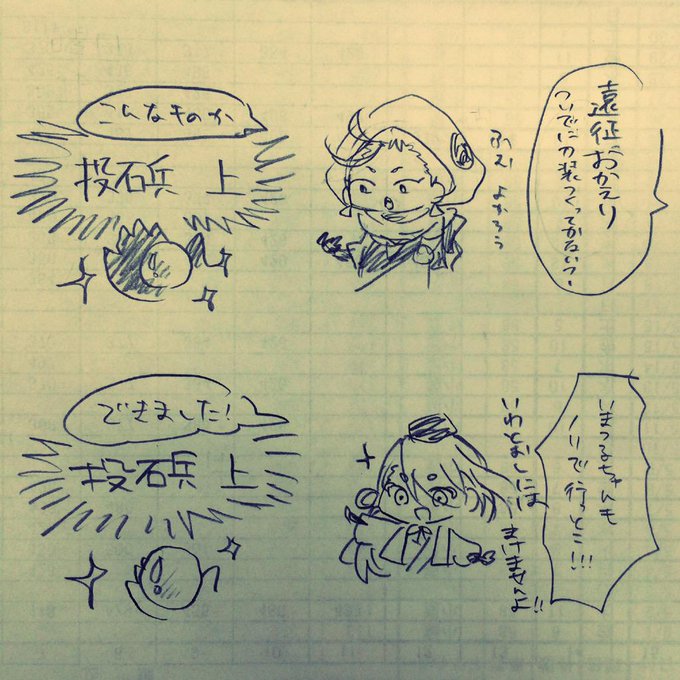 遠征おかえり
ついでに刀装つくってかない？
ふむ よかろう
こんなものか
投石兵 上
いまつるちゃんも
ノリで行っとこ!!!
いわとおしには
まけませんよ!!
できました!
投石兵 上